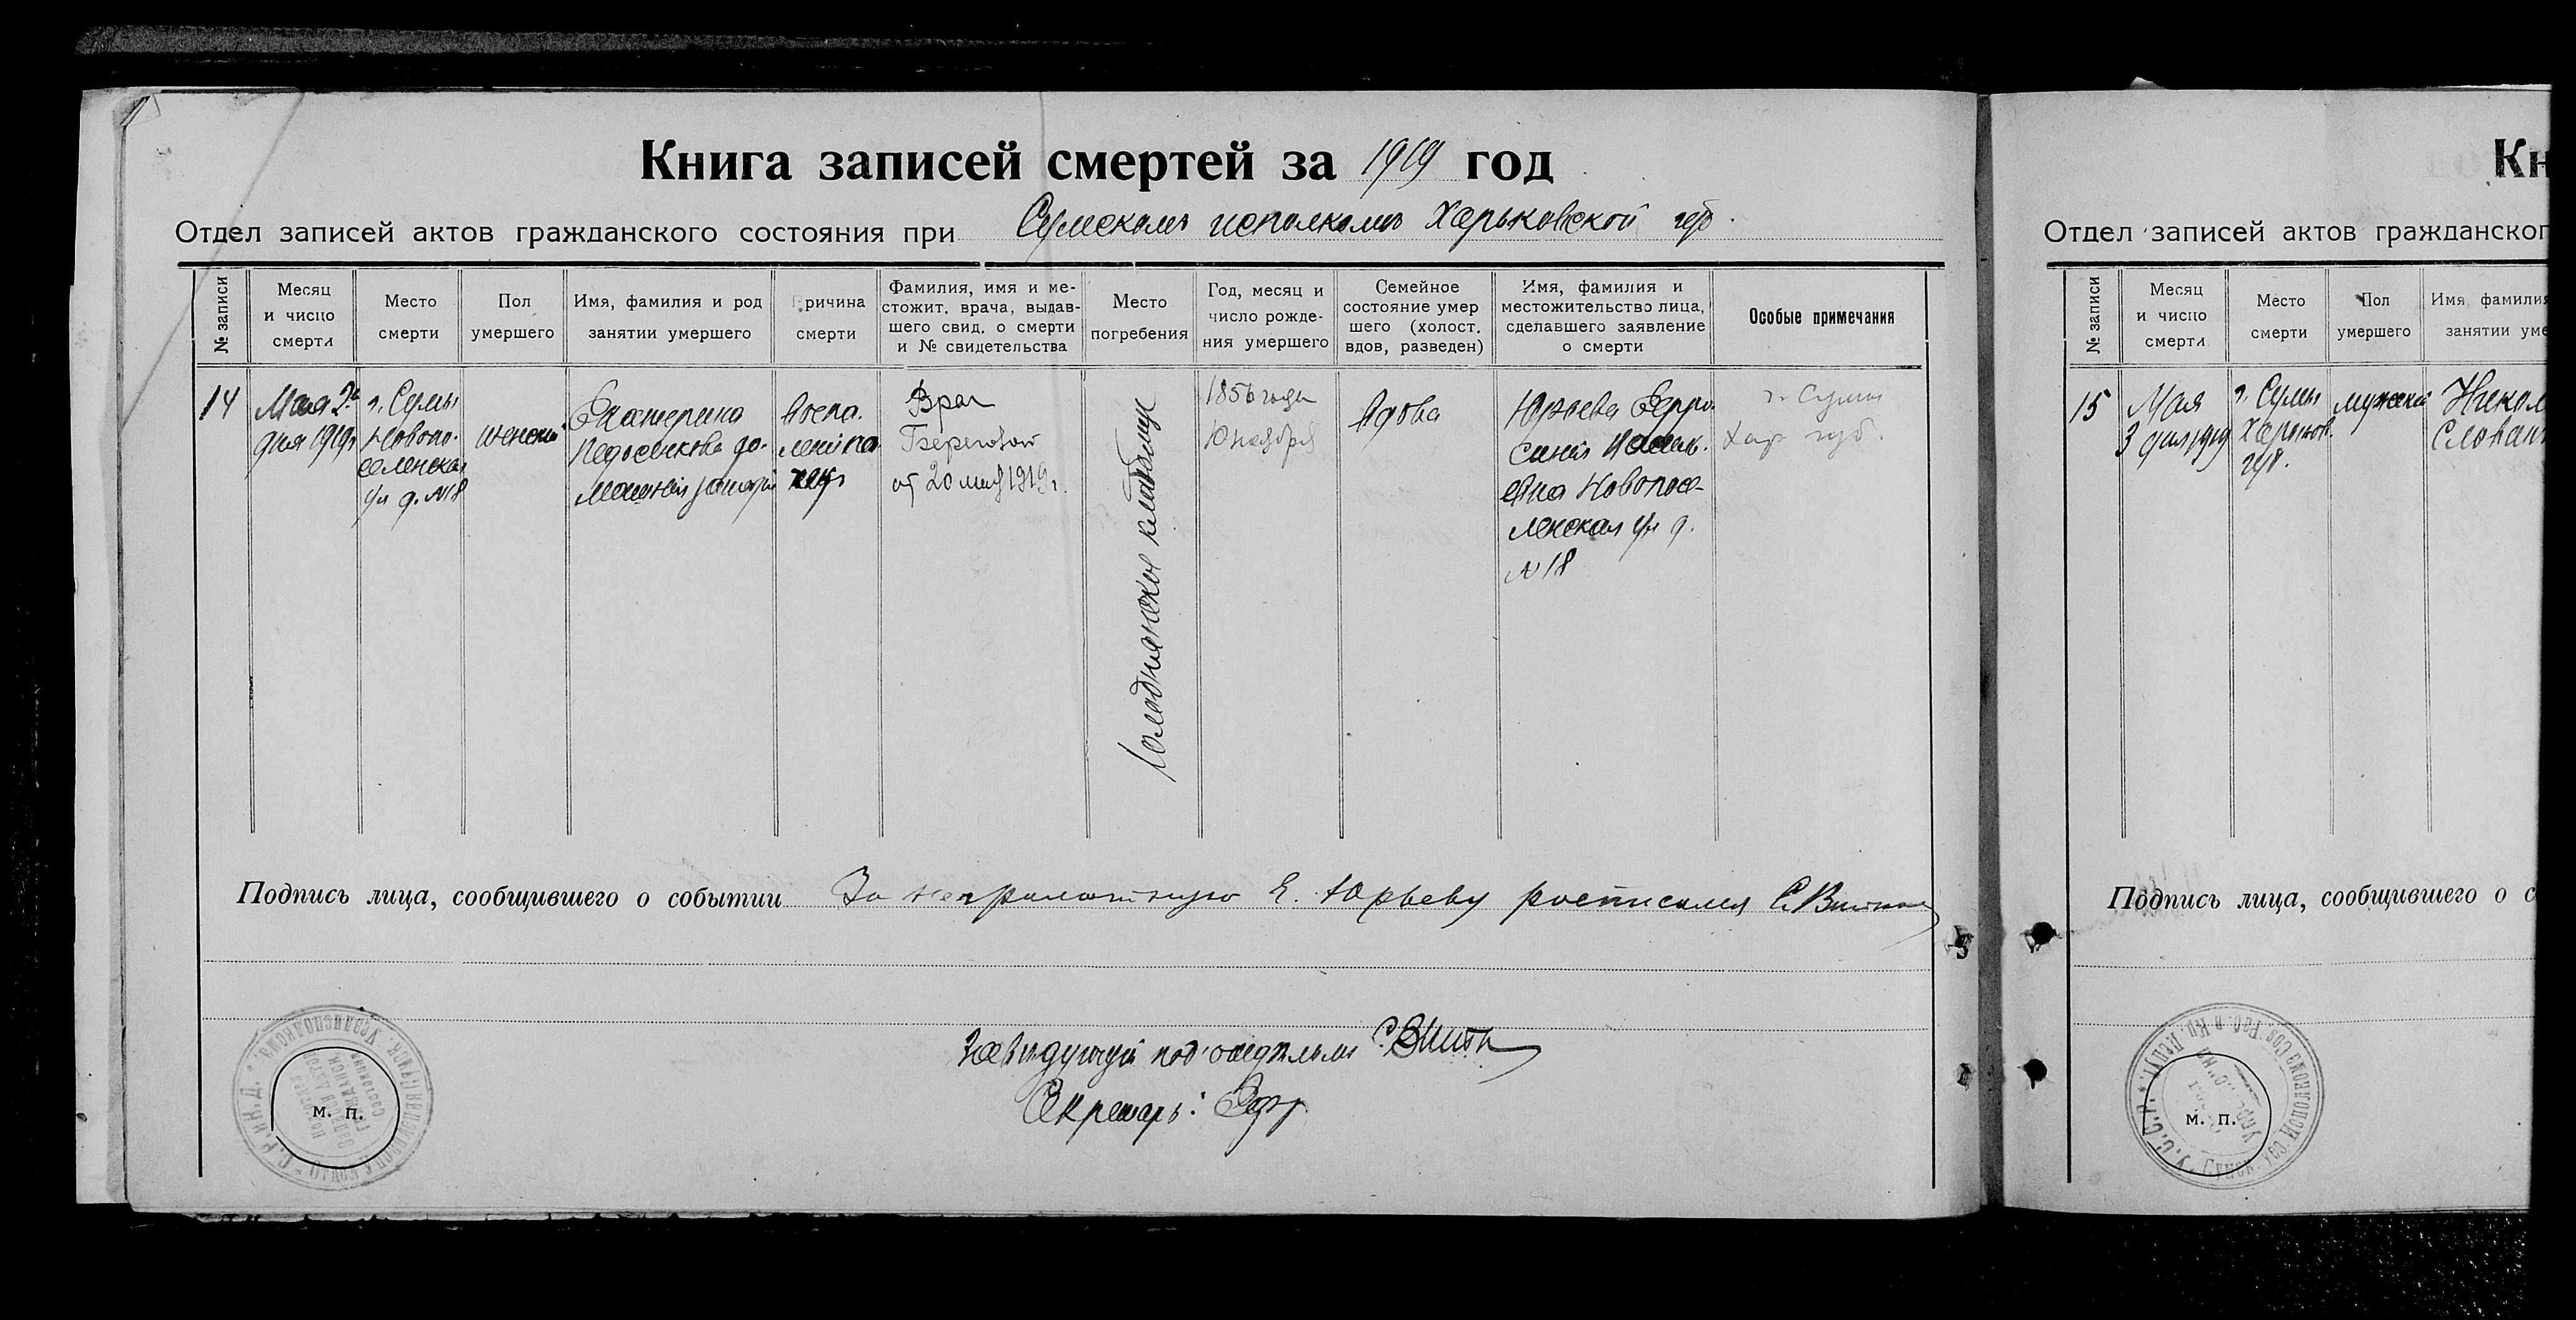 Книга записей смертей за 1919 год
Отдел записей актов гражданского состояния при Сумском исполкоме Харьковской губ.
№ записи
Месяц
и число
смерти
Место
смерти
Пол
умершего
Имя, фамилия и род
занятии умершего
Причина
смерти
Фамилия, имя и ме-
стожит. врача, выдав-
шего свид. о смерти
и № свидетельства
Место
погребения
Год, месяц и
число рожде-
ния умершего
Семейное
состояние умер
шего (холост.
вдов, разведен)
Имя, фамилия и
местожительство лица,
сделавшего заявление
о смерти
Особые примечания
14
Мая 2го
дня 1919г
г. Сумы
Новопо-
селенская
ул д. №18
женский
Екатерина
Недосекова до-
машния
Воспа.
Врач
от 20 мая 1919г.
кладбище
1856 года
ноября
Вдова
Юрьева
Новопосе-
ленская ул д.
№ 18
г. Сумы
Хар губ.
Подпись лица, сообщившего о событии За неграмотную Е. Юрьеву
Заведующий под-отделом
Секретарь:
м. п.
Кн
Отдел записей актов гражданског
№ записи
Месяц
и число
смерти
Место
смерти
Пол
умершего
Имя, фамилия
занятии уме
15
Мая
3 дня 1919
г. Сумы
Харьков.
губ.
мужской
Никол
Подпись лица, сообщившего о с
м. п.